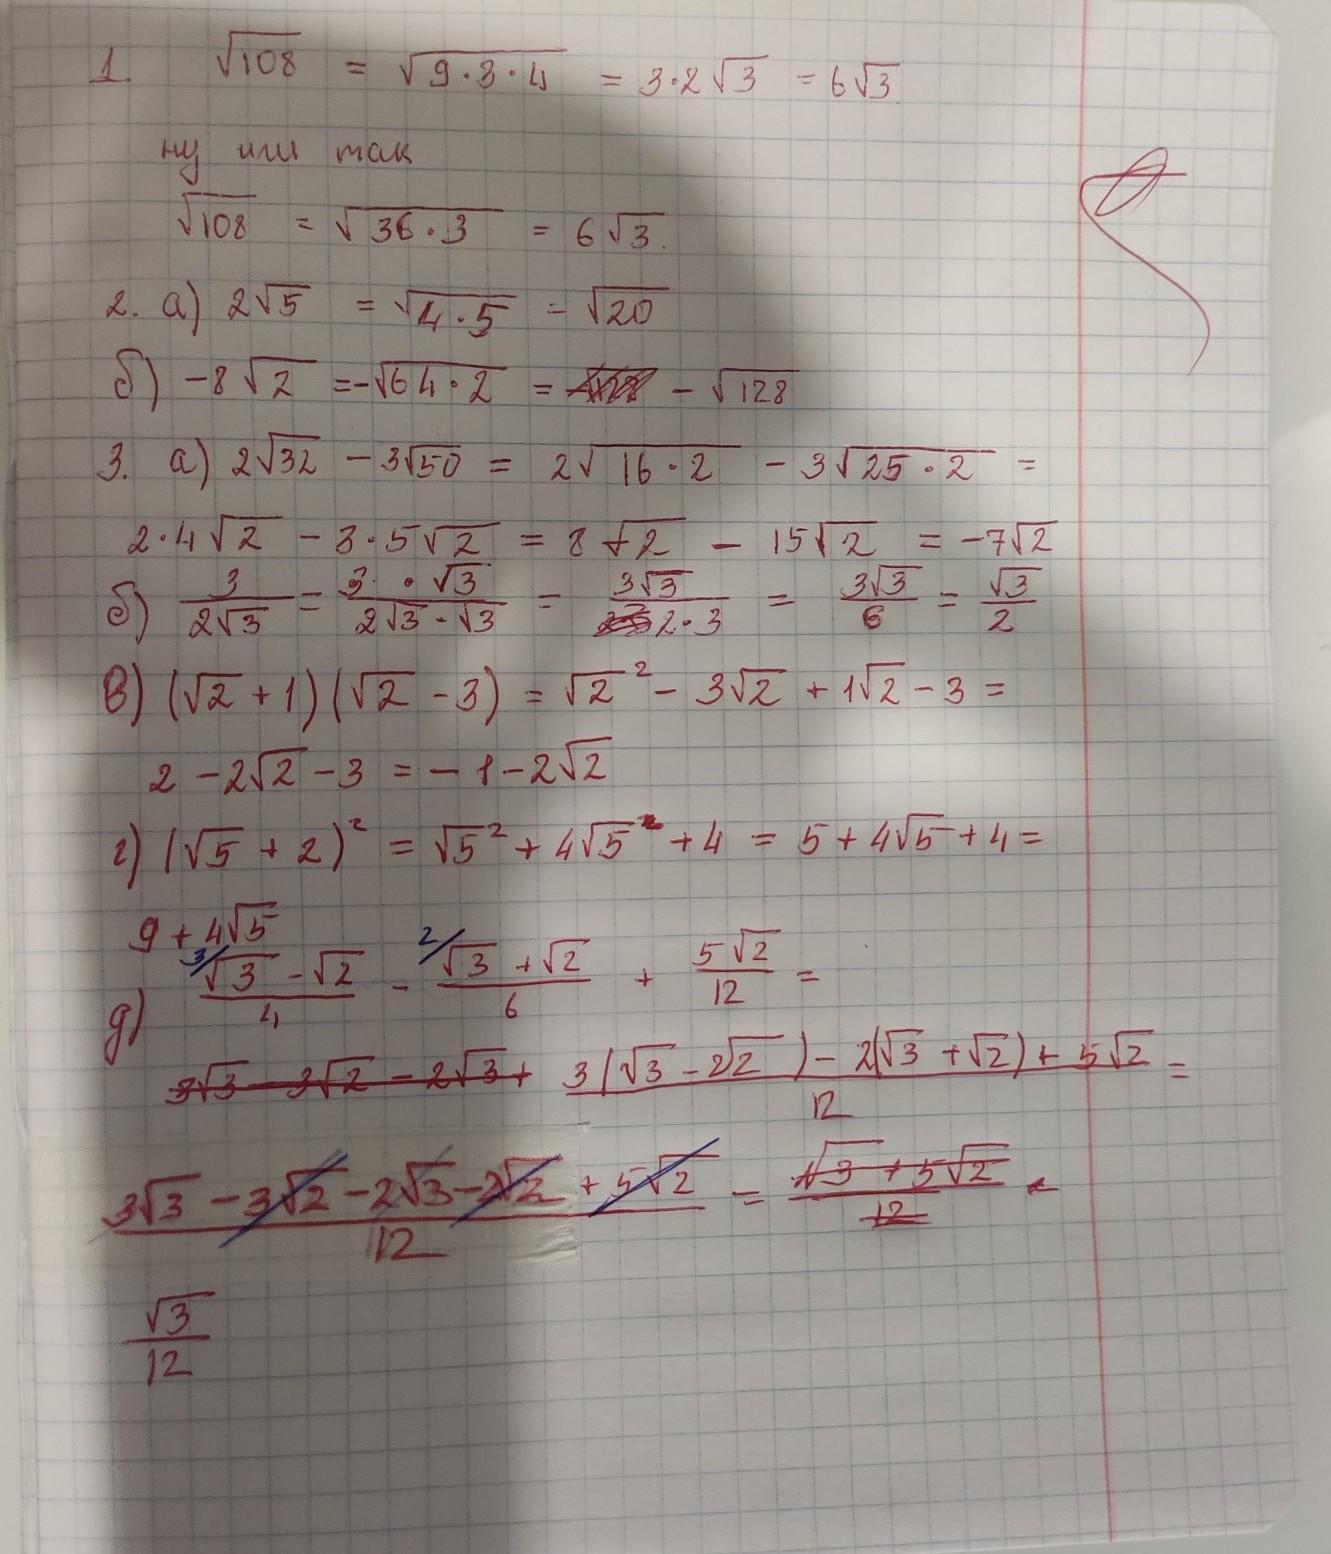 1. √108 = √9·3·4 = 3·2√3 = 6√3.
ну или так
√108 = √36·3 = 6√3.
2. а) 2√5 = √4·5 = √20
б) -8√2 = -√64·2 = - √128
3. а) 2√32 - 3√50 = 2√16·2 - 3√25·2 =
2·4√2 - 3·5√2 = 8√2 - 15√2 = -7√2
б) 3/2√3 = 3·√3/2√3·√3 = 3√3/2·3 = 3√3/6 = √3/2
в) (√2 + 1)(√2 - 3) = √2² - 3√2 + 1√2 - 3 =
2 - 2√2 - 3 = -1 - 2√2
г) (√5 + 2)² = √5² + 4√5 + 4 = 5 + 4√5 + 4 =
9 + 4√5
д) 3/ √3 - √2/4 - 2/ √3 + √2/6 + 5√2/12 =
3√3 - 3√2 - 2√3 + 3(√3 - 2√2) - 2(√3 + √2) + 5√2/12 =
3√3 - 3√2 - 2√3 - 2√2 + 5√2/12 = √3 + 5√2/12 =
√3/12